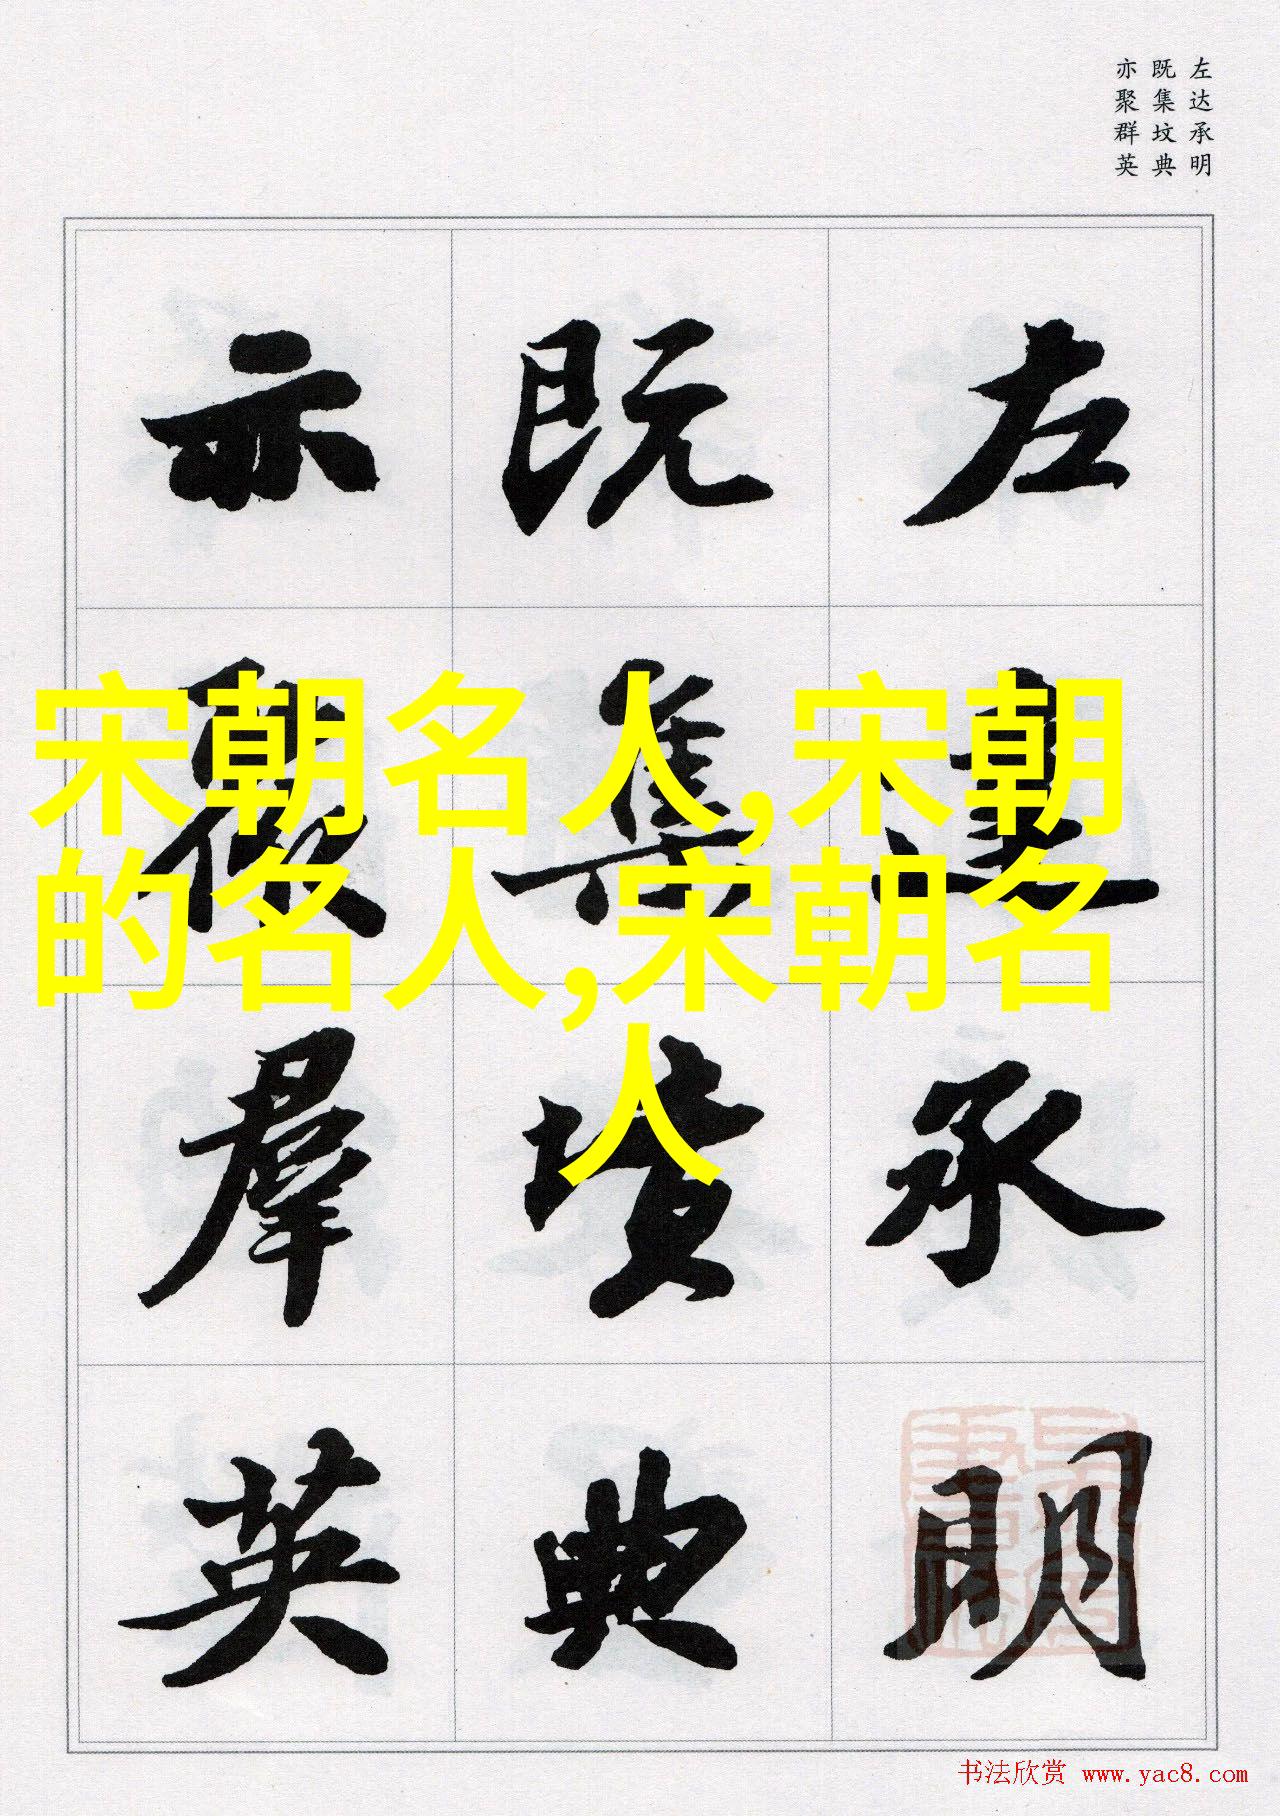 左达承明
既集坟典
亦聚群英
左達承明
既集墳典
亦聚羣英
宋朝名人,宋朝
的名人,宋朝名
人
书法欣赏 www.yac8.com